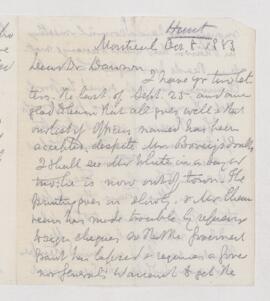 Hunt
Montreal Oct 8. 1883
Dear Dr Dawson
I have yr two let
ters. The last of Sept. 25. and am
glad to learn that all goes well & that
our list of officers named has been
accepted, despite Mr doubts
I shall see Mr White in a day or
two. he is now out of town. The
printing goes on slowly. & Mr
has made trouble by refusing
to sign cheques so that the Government
grant has lapsed & requires a Gove
nor General's Warrant to get the